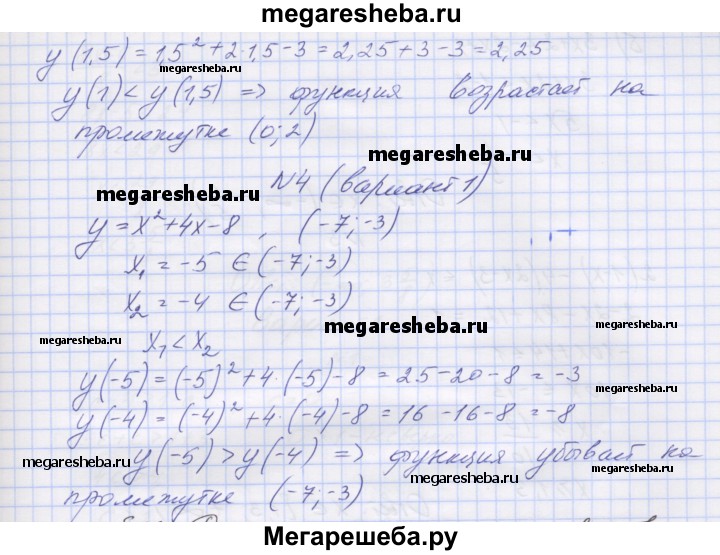 megaresheba.ru
y(1,5) = 1,5² + 2·1,5 - 3 = 2,25 + 3 - 3 = 2,25
megaresheba.ru megaresheba.ru
y(1) < y(1,5) => функция возрастает на
промежутке (0; 2)
megaresheba.ru
N4 (вариант 1)
megaresheba.ru
y = x² + 4x - 8 , (-7; -3)
x₁ = -5 ∈ (-7; -3)
x₂ = -4 ∈ (-7; -3)
megaresheba.ru
megaresheba.ru
x₁ < x₂
megaresheba.ru
y(-5) = (-5)² + 4·(-5) - 8 = 25 - 20 - 8 = -3
megaresheba.ru
y(-4) = (-4)² + 4·(-4) - 8 = 16 - 16 - 8 = -8
y(-5) > y(-4) => функция убывает на
megaresheba.ru megaresheba.ru
промежутке (-7; -3)
megaresheba.ru
Мегарешеба.ру